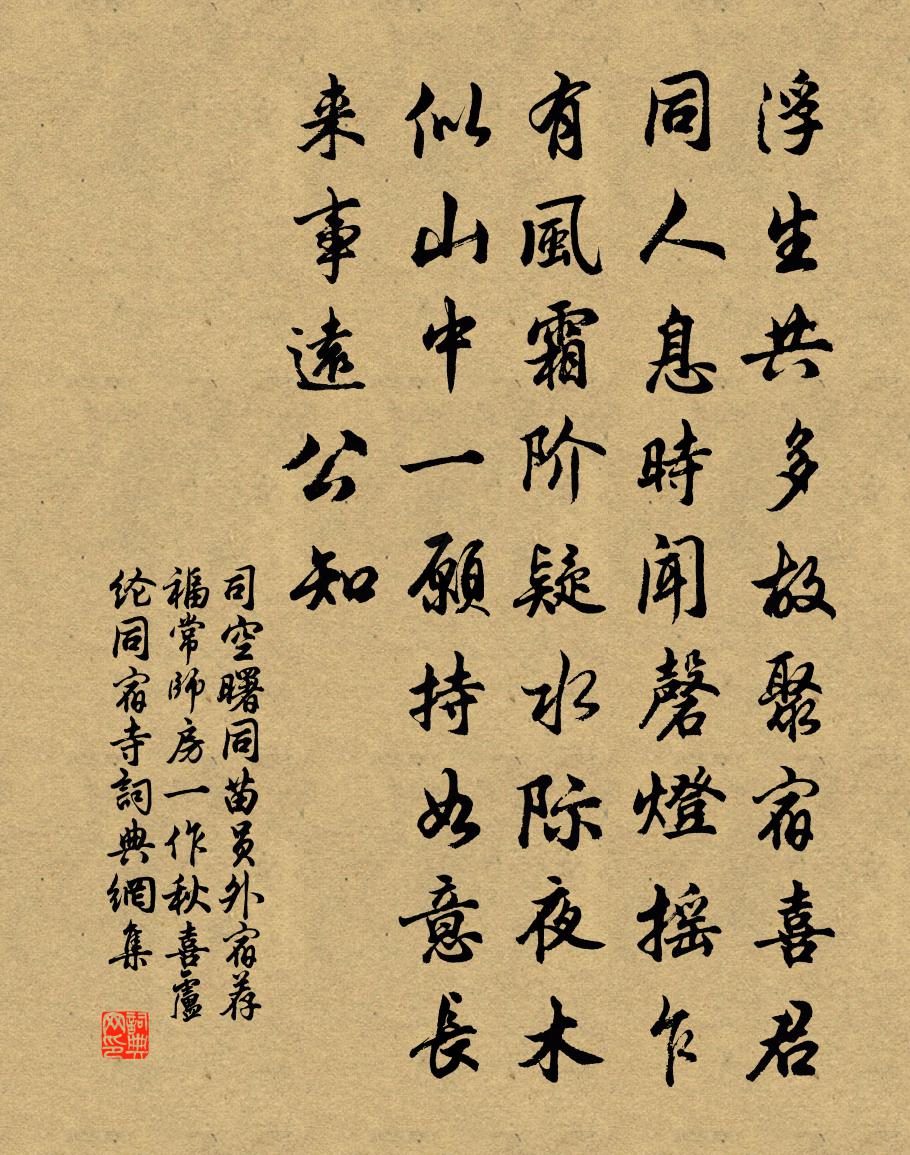 浮生共多故聚宿喜君
同人息時闻磬燈摇乍
有風霜阶疑水际夜木
似山中一願持如意長
来事遠公知
司空曙同苗员外宿荐
福常師房一作秋喜盧
纶同宿寺詞典網集
詞典网印